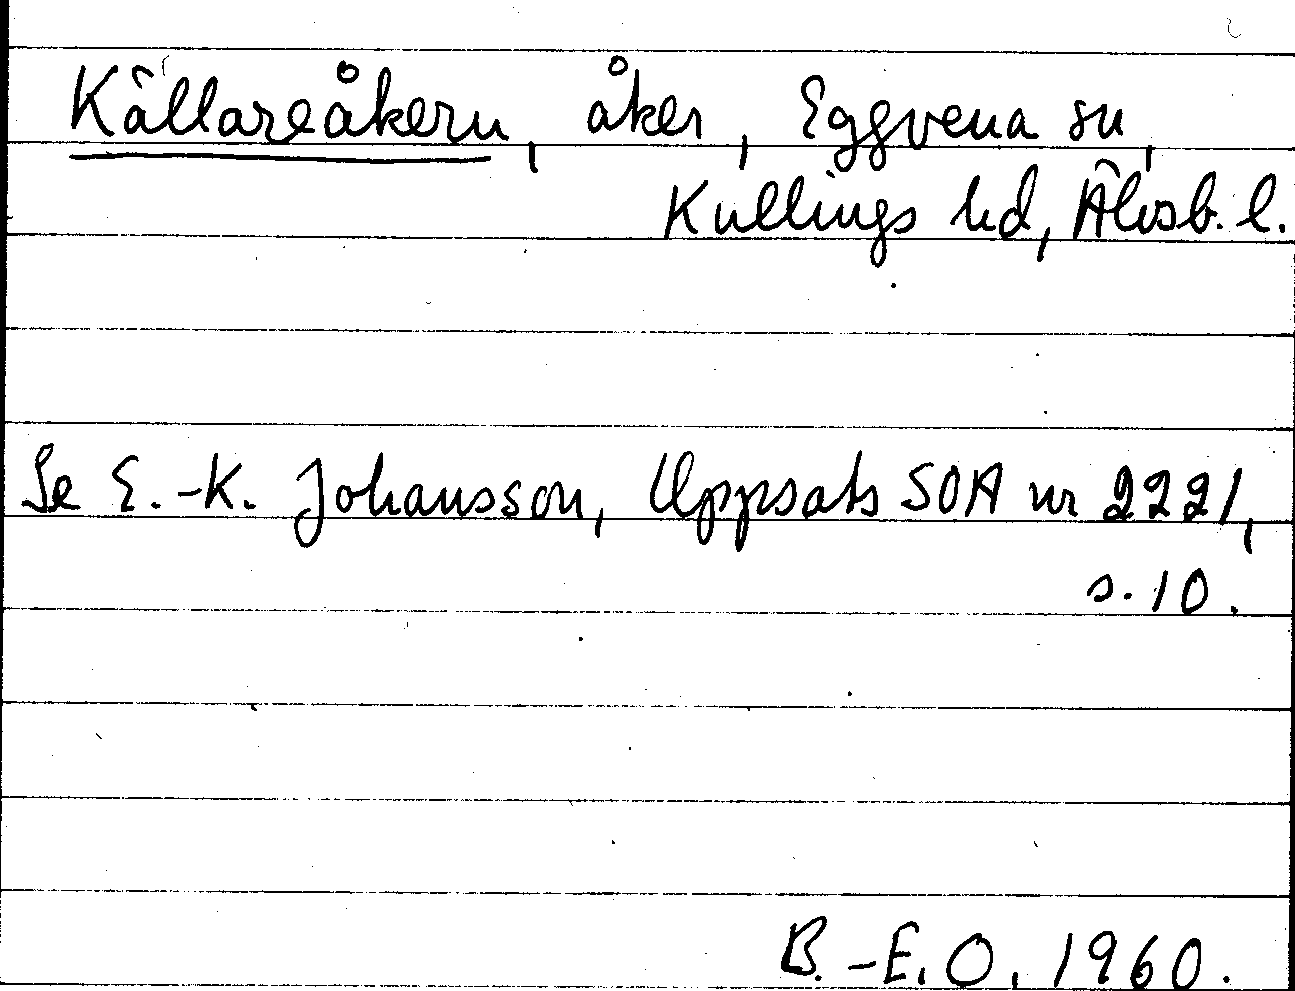 Källareåkern, åker, Eggvena sn,
Kullings hd, Älvsb. l.
Se E.-K. Johansson, Uppsats SOA nr 2221,
s. 10.
B.-E. O. 1960.